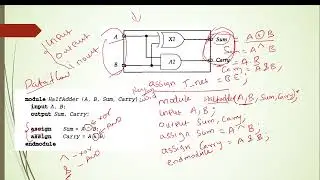 Input
output
inout
Dataflow
A
B
X1
A1
Sum
Carry
A ⊕ B
Sum = A ^ B
Carry = A & B;
assign T_net = B.E;
module HalfAdder (A, B, Sum, Carry);
input A, B;
output Sum, Carry;
assign Sum = A ^ B;
assign Carry = A & B;
endmodule
module HalfAdder (A, B, Sum, Carry);
input A, B;
output Sum, Carry;
assign Sum = A ^ B;
assign Carry = A & B;
endmodule
^ - xor